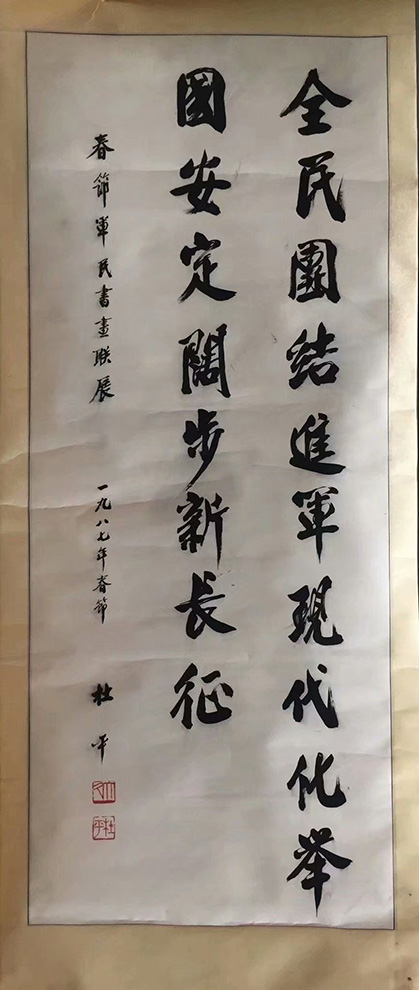 全民團结進軍現代化举
國安定闊步新長征
春節軍民書畫联展
一九八七年春節
杜平
杜平